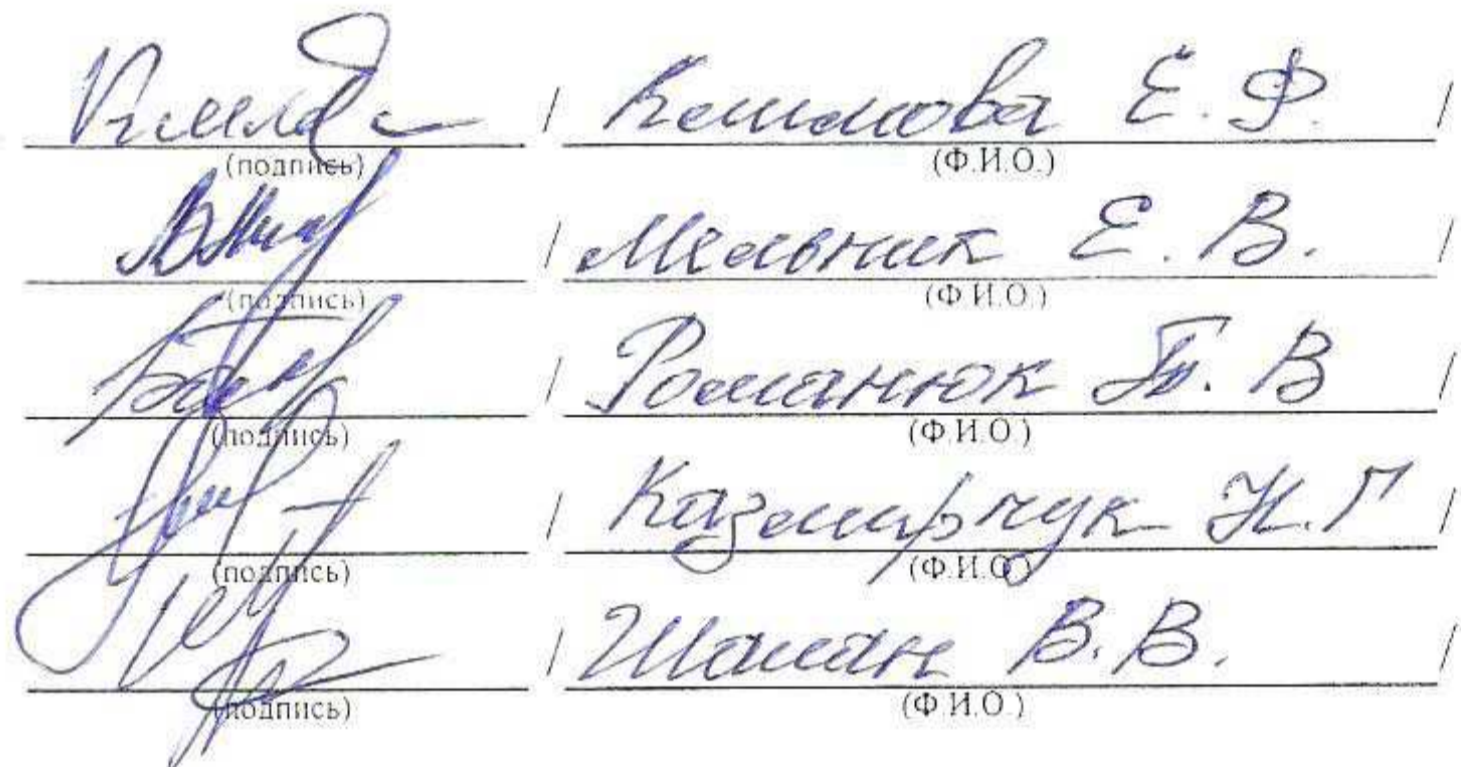 / Кешмова Е. Ф. /
(подпись) (Ф.И.О.)
/ Мельник Е. В. /
(подпись) (Ф.И.О.)
/ Романюк Т. В /
(подпись) (Ф.И.О.)
/ Казмирчук Н. Г /
(подпись) (Ф.И.О)
/ Шаман В. В. /
(подпись) (Ф.И.О.)